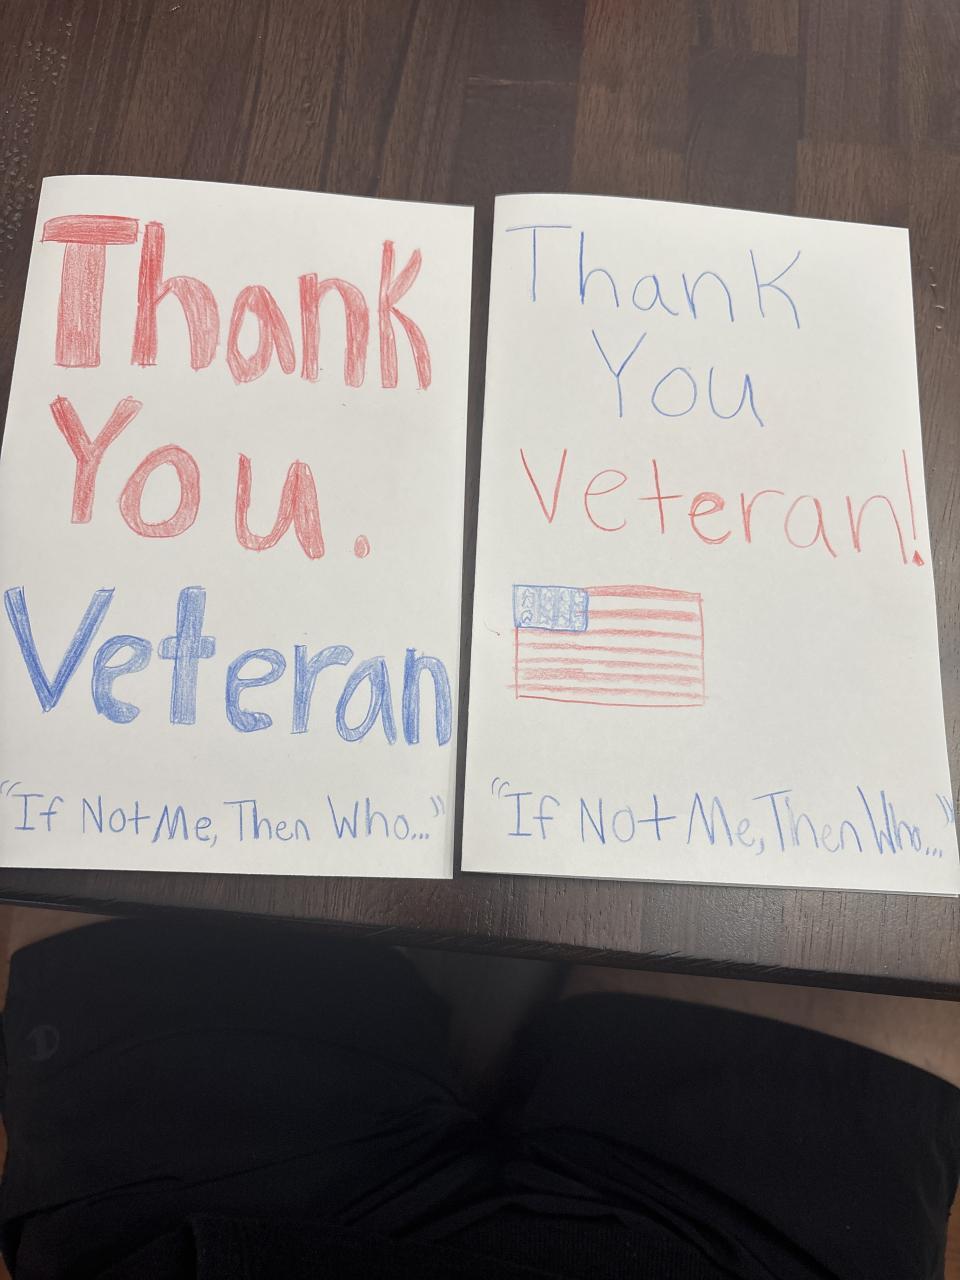 Thank
You.
Veteran
"If Not Me, Then Who..."
Thank
You
Veteran!
"If Not Me, Then Who..."